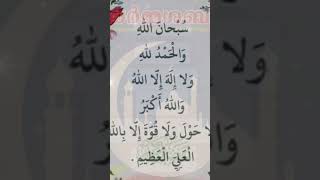 سُبْحَانَ اللّٰهِ
وَالْحَمْدُ لِلّٰهِ
وَلَا إِلَهَ إِلَّا اللّٰهُ
وَاللّٰهُ أَكْبَرُ
حَوْلَ وَلَا قُوَّةَ إِلَّا بِاللّٰهِ
الْعَلِيِّ الْعَظِيمِ .